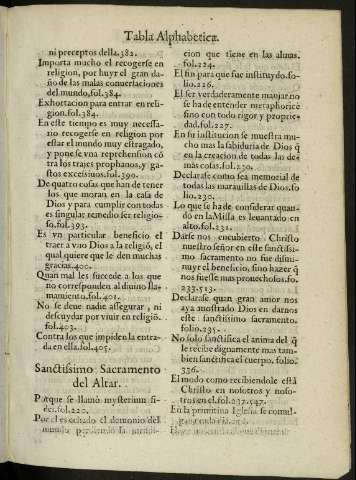 Tabla Alphabetica.
ni preceptos della. 382.
Importa mucho el recogerse en
religion, por huyr el gran da-
ño de las malas conuersaciones
del mundo, fol. 384.
Exhortacion para entrar en reli-
gion. fol. 384.
En este tiempo es muy necessa-
rio recogerse en religion por
estar el mundo muy estragado,
y pone se vna reprehension cõ
tra los trajes prophanos, y ga-
stos excessiuos. fol. 390.
De quatro cosas que han de tener
los que moran en la casa de
Dios y para cumplir con todas
es singular remedio ser religio-
so. fol. 393.
Es vn particular beneficio el
traer a vno Dios a la religiõ, el
qual quiere que le den muchas
gracias. 400.
Quan mal les succede a los que
no corresponden al diuino lla-
mamiento. fol. 401.
No se deue nadie assegurar, ni
descuydar por viuir en religiõ.
fol. 403.
Contra los que impiden la entra-
da en ella. fol. 405.
Sanctissimo Sacramento
del Altar.
Porque se llamò mysterium fi-
dei. fol. 220.
Por el es echado el demonio del
mundo
cion que tiene en las almas.
fol. 224.
El fin para que fue instituydo. fo-
lio. 226.
El ser verdaderamente manjar no
se ha de entender metaphoricè
sino con todo rigor y proprie-
dad. fol. 227.
En su institucion se muestra mu-
cho mas la sabiduria de Dios q̃
en la creacion de todas las de-
màs cosas. fol. 230.
Declarase como sea memorial de
todas las marauillas de Dios. fo
lio. 230.
Lo que se ha de considerar quan-
do en la Missa es leuantado en
alto. fol. 231.
Darse nos encubierto Christo
nuestro señor en este sanctissi-
mo sacramento no fue dismi-
nuyr el beneficio, sino hazer q̃
nos fuesse mas prouechoso. fo.
233. 513.
Declarase quan gran amor nos
aya mostrado Dios en darnos
este sanctissimo sacramento.
folio. 235.
No solo sanctifica el anima del q̃
le recibe dignamente mas tam-
bien sanctifica el cuerpo. folio.
336.
El modo como recibiendole està
Christo en nosotros y noso-
tros en el. fol. 237. 547.
En la primitiua Iglesia se comul-
gaua cada dia. fol.